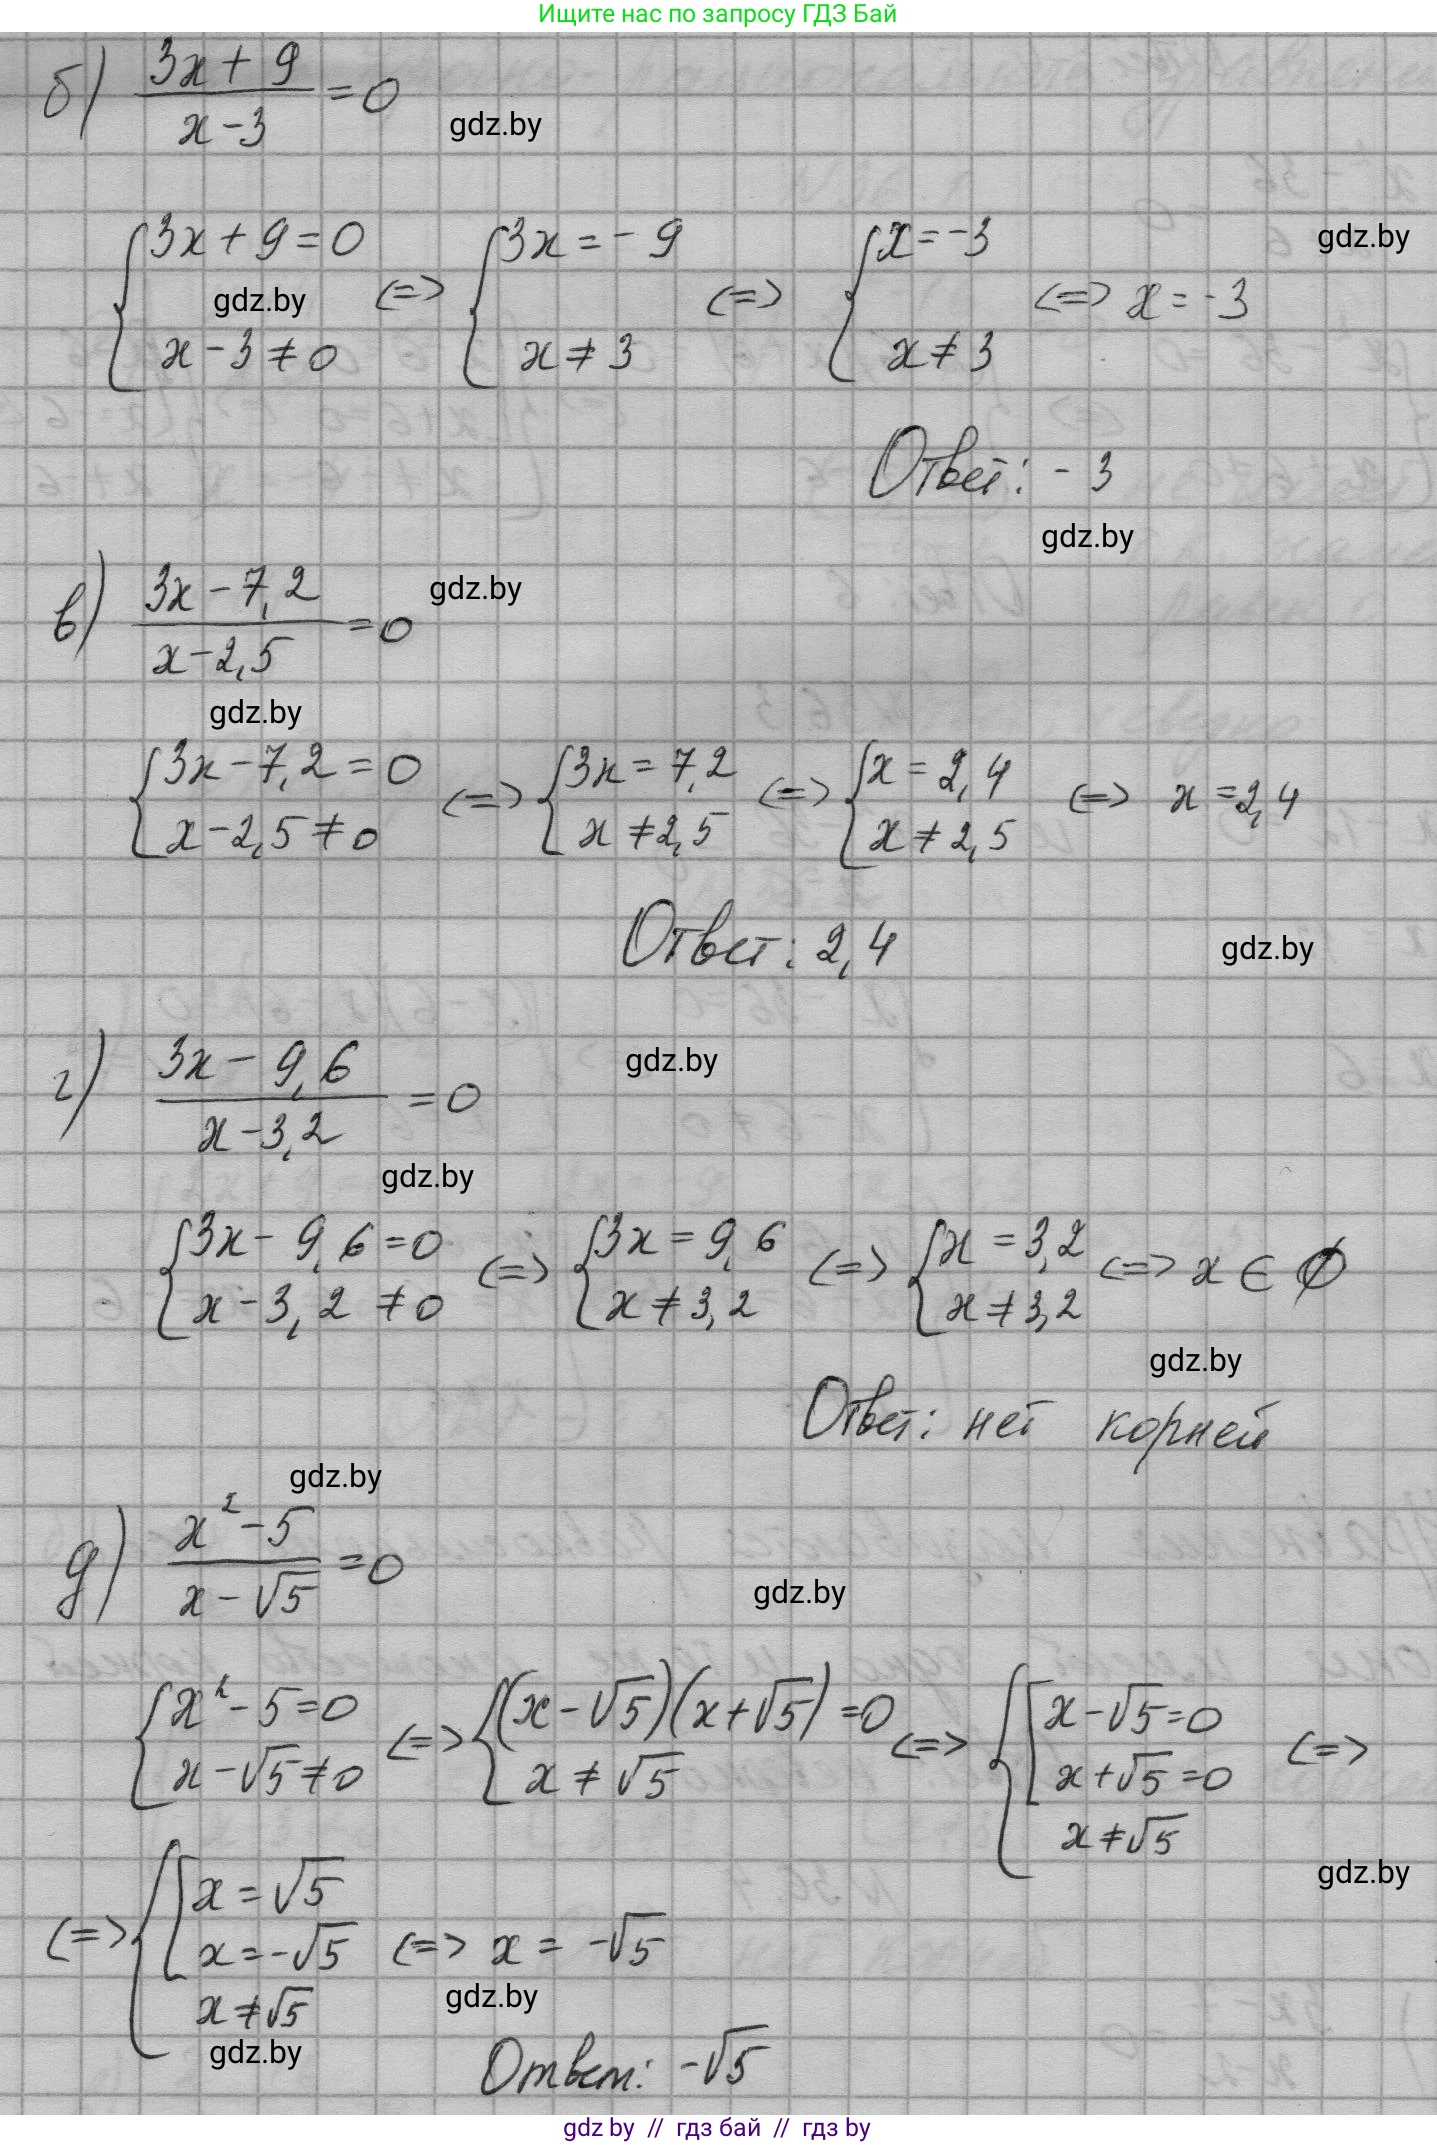 Ищите нас по запросу ГДЗ Бай
б) (3x + 9)/(x - 3) = 0
gdz.by
gdz.by
{3x + 9 = 0 <=> {3x = -9 <=> {x = -3 <=> x = -3
gdz.by
x - 3 ≠ 0 x ≠ 3 x ≠ 3
Ответ: - 3
gdz.by
в) (3x - 7,2)/(x - 2,5) = 0
gdz.by
gdz.by
{3x - 7,2 = 0 <=> {3x = 7,2 <=> {x = 2,4 <=> x = 2,4
x - 2,5 ≠ 0 x ≠ 2,5 x ≠ 2,5
Ответ: 2,4
gdz.by
г) (3x - 9,6)/(x - 3,2) = 0
gdz.by
gdz.by
{3x - 9,6 = 0 <=> {3x = 9,6 <=> {x = 3,2 <=> x ∈ ∅
x - 3,2 ≠ 0 x ≠ 3,2 x ≠ 3,2
gdz.by
Ответ: нет корней
gdz.by
д) (x² - 5)/(x - √5) = 0
gdz.by
{x² - 5 = 0 <=> {(x - √5)(x + √5) = 0 <=> {[x - √5 = 0 <=>
x - √5 ≠ 0 x ≠ √5 x + √5 = 0
x ≠ √5
gdz.by
<=> {[x = √5
x = -√5 <=> x = -√5
x ≠ √5
gdz.by
gdz.by
Ответ: -√5
gdz.by // гдз бай // гдз by